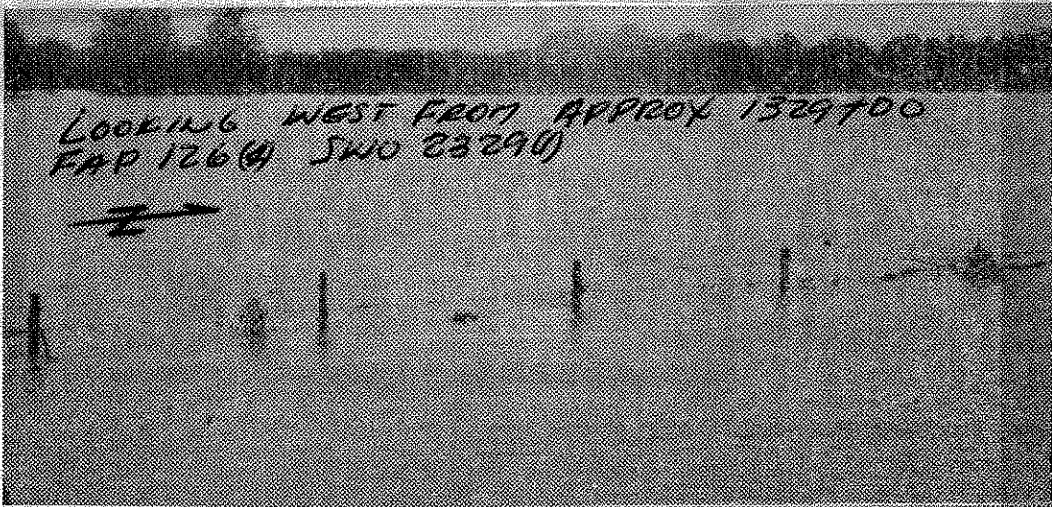 LOOKING WEST FROM APPROX 1329+00
FAP 126 SWO 2329(1)
Z